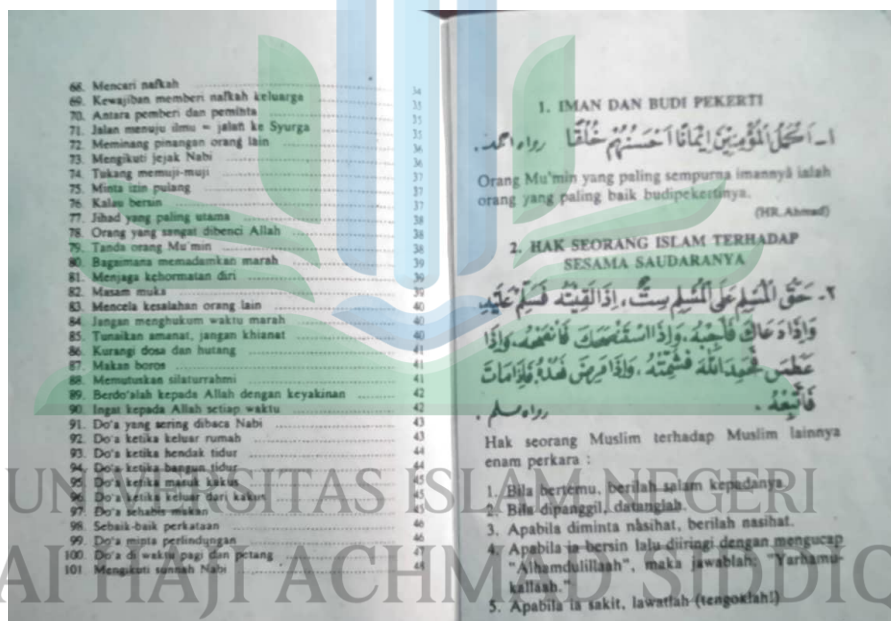 68. Mencari nafkah 34
69. Kewajiban memberi nafkah keluarga 35
70. Antara pemberi dan peminta 35
71. Jalan menuju ilmu = jalan ke Syurga 35
72. Meminang pinangan orang lain 36
73. Mengikuti jejak Nabi 36
74. Tukang memuji-muji 37
75. Minta izin pulang 37
76. Kalau bersin 37
77. Jihad yang paling utama 38
78. Orang yang sangat dibenci Allah 38
79. Tanda orang Mu'min 38
80. Bagaimana memadamkan marah 39
81. Menjaga kehormatan diri 39
82. Masam muka 39
83. Mencela kesalahan orang lain 40
84. Jangan menghukum waktu marah 40
85. Tunaikan amanat, jangan khianat 40
86. Kurangi dosa dan hutang 41
87. Makan boros 41
88. Memutuskan silaturrahmi 41
89. Berdo'alah kepada Allah dengan keyakinan 42
90. Ingat kepada Allah setiap waktu 42
91. Do'a yang sering dibaca Nabi 43
92. Do'a ketika keluar rumah 43
93. Do'a ketika hendak tidur 44
94. Do'a ketika bangun tidur 44
95. Do'a ketika masuk kakus 45
96. Do'a ketika keluar dari kakus 45
97. Do'a sehabis makan 45
98. Sebaik-baik perkataan 46
99. Do'a minta perlindungan 46
100. Do'a di waktu pagi dan petang 47
101. Mengikuti sunnah Nabi 48
1. IMAN DAN BUDI PEKERTI
١- اَكْمَلُ الْمُؤْمِنِيْنَ اِيْمَانًا اَحْسَنُهُمْ خُلُقًا رواه احمد .
Orang Mu'min yang paling sempurna imannya ialah
orang yang paling baik budipekertinya.
(HR. Ahmad)
2. HAK SEORANG ISLAM TERHADAP
SESAMA SAUDARANYA
٢- حَقُّ الْمُسْلِمِ عَلَى الْمُسْلِمِ سِتٌّ، اِذَا لَقِيْتَهُ فَسَلِّمْ عَلَيْهِ
وَاِذَا دَعَاكَ فَاَجِبْهُ، وَاِذَا اسْتَنْصَحَكَ فَانْصَحْهُ، وَاِذَا
عَطَسَ فَحَمِدَ اللّٰهَ فَشَمِّتْهُ، وَاِذَا مَرِضَ فَعُدْهُ، فَاِذَا مَاتَ
فَاتْبَعْهُ . رواه مسلم .
Hak seorang Muslim terhadap Muslim lainnya
enam perkara :
1. Bila bertemu, berilah salam kepadanya.
2. Bila dipanggil, datanglah.
3. Apabila diminta nasihat, berilah nasihat.
4. Apabila ia bersin lalu diiringi dengan mengucap
"Alhamdulillaah", maka jawablah: "Yarhamu-
kallaah.".
5. Apabila ia sakit, lawatlah (tengoklah!)
UNIVERSITAS ISLAM NEGERI
AI HAJI ACHMAD SIDDIQ